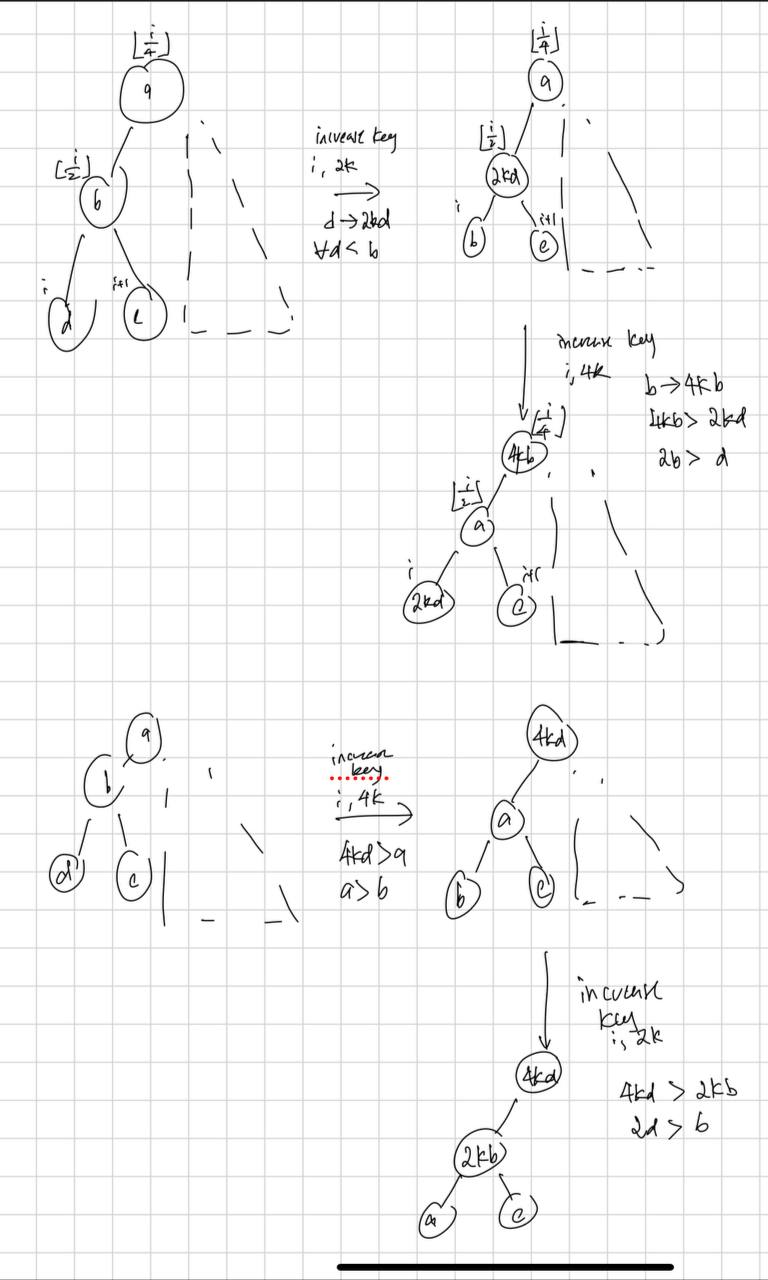 [i/4]
a
[i/2]
b
i
i+1
d
c
increase key
i, 2k
d → 2kd
∀d < b
[i/4]
a
[i/2]
2kd
i
i+1
b
c
increase key
i, 4k
b → 4kb
4kb > 2kd
2b > d
[i/4]
4kb
[i/2]
a
i
i+1
2kd
c
a
b
d
c
increase
key
i, 4k
4kd > a
a > b
4kd
a
b
c
increase
key
i, 2k
4kd > 2kb
2d > b
4kd
2kb
a
c